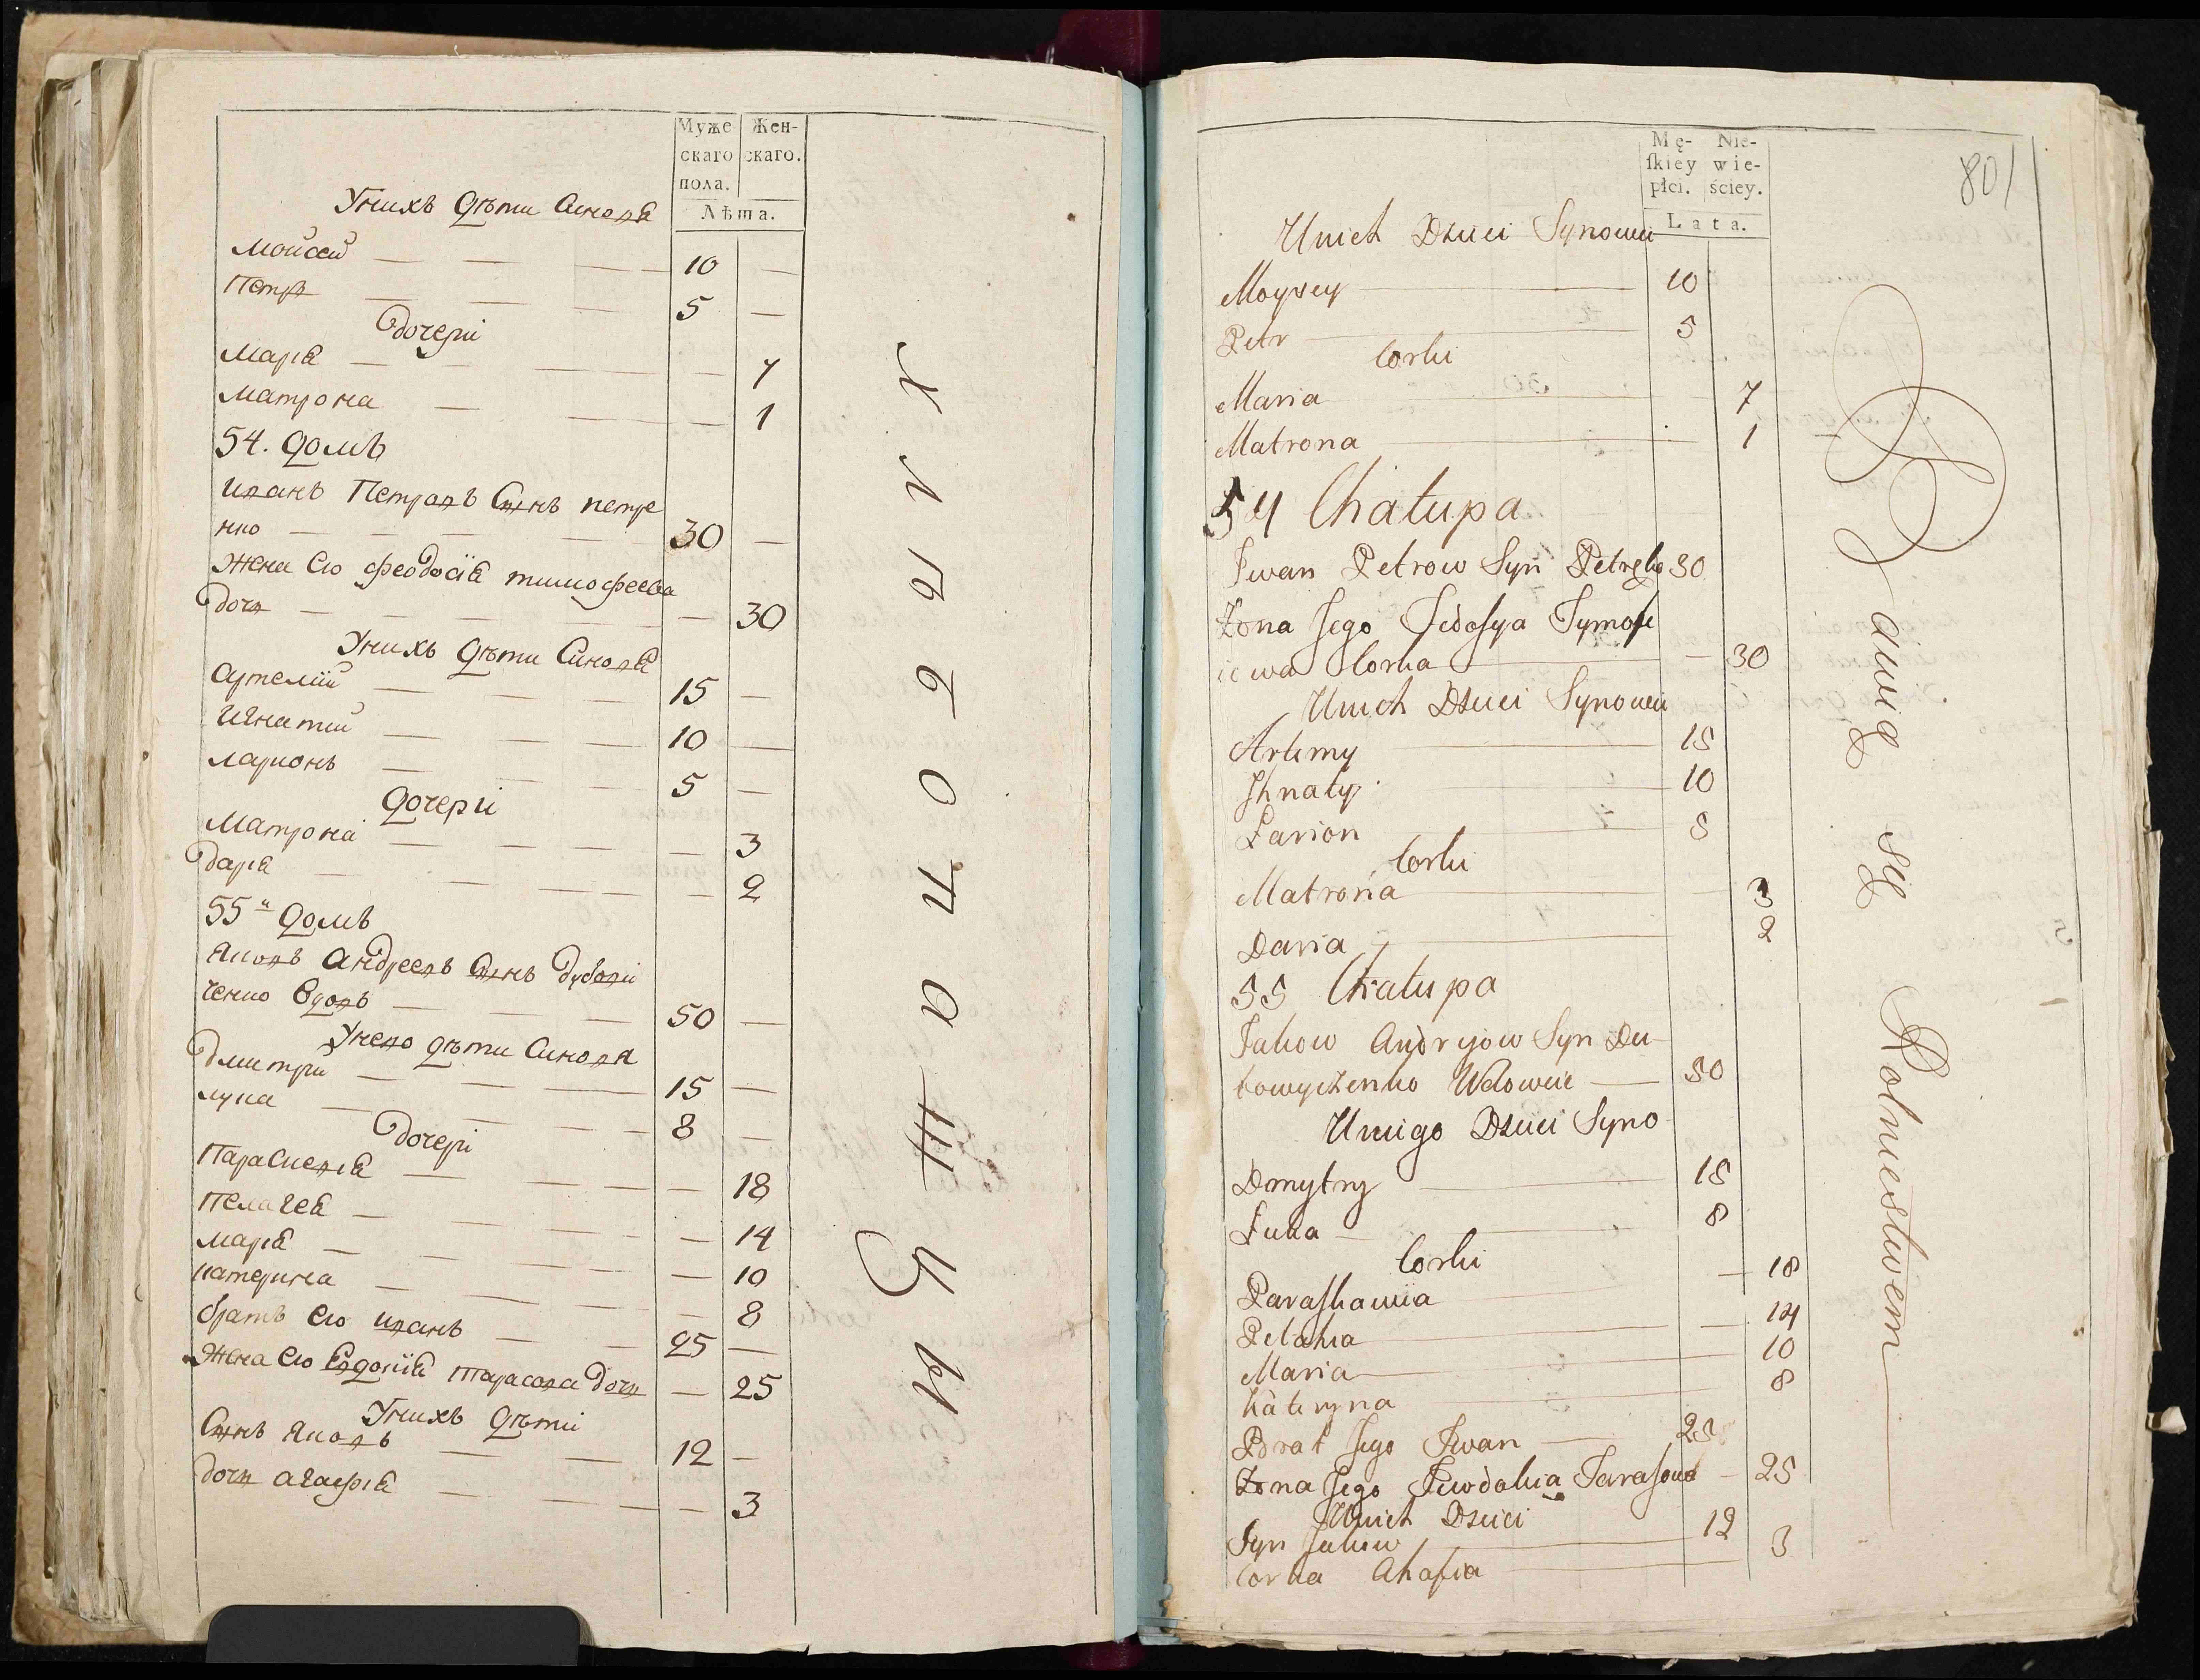 Муже
скаго
пола.
Жен-
скаго.
Лѣта.
Унихъ Дѣти Синовя
Мойсей — 10 —
Петръ — 5 —
Дочери
Марія — — 7
Матрона — — 1
54. Домъ
Иванъ Петровъ Сынъ петре
нко — 30 —
Жена Его Феодосія тимофеева
Дочь — — 30
Унихъ Дѣти Синовя
Артемій — 15 —
Игнатий — 10 —
Ларионъ — 5 —
Дочери
Матрона — — 3
Дарія — — 2
55й Домъ
Яковъ Андреевъ Сынъ Дубови
ченко Вдовъ — 50 —
Унево дѣти Синовя
Дмитрий — 15 —
лука — 8 —
Дочери
Параскевія — — 18
Пелагея — — 14
Марія — — 10
катерина — — 8
братъ Его иванъ — 25 —
Жена Его Евдокія Тарасова Дочь — 25
Унихъ Дѣти
Сынъ Яковъ — 12 —
Дочь агафія — — 3
801
Mę-
skiey
płci.
Nie-
wie-
ściey.
Lata.
Unich Dzieci Synowie
Moysey — 10
Petr — 5
Corki
Maria — 7
Matrona — 1
54 Chałupa
Iwan Petrow Syn Petręko 30
Żona Jego Fedosya Tymofe
iewa Corka — 30
Unich Dzieci Synowie
Artemy — 15
Ihnaty — 10
Łarion — 5
Corki
Matrona — 3
Daria — 2
55 Chałupa
Jakow Andryjow Syn Du
bowyczenko Wdowiec — 50
Uniego Dzieci Syno
Dmytry — 15
Łuka — 8
Corki
Paraskawiia — 18
Pelahia — 14
Maria — 10
Kateryna — 8
Brat Jego Iwan — 25
Żona Jego Jewdokia Tarasowa — 25
Unich Dzieci
Syn Jakow — 12
Corka Ahafia — 3
Bawią się Rolniestwem